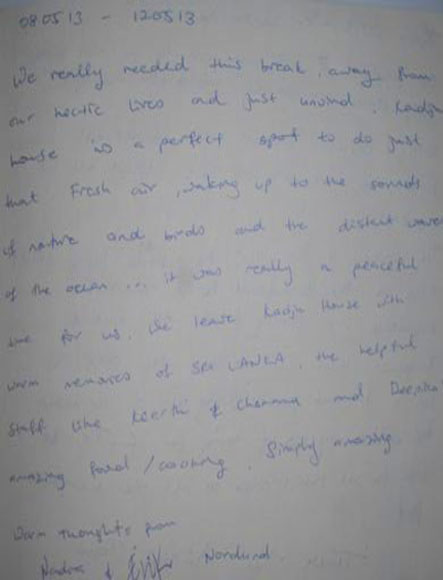 08.05.13 - 12.05.13
We really needed this break, away from
our hectic lives and just unwind. Kadju
house is a perfect spot to do just
that. Fresh air, waking up to the sounds
of nature and birds and the distant waves
of the ocean ... it was really a peaceful
time for us. We leave Kadju House with
warm memories of SRI LANKA, the helpful
staff like Keerthi & and Deepika
amazing food / cooking. Simply amazing.
Warm thoughts from
& Nordlund.